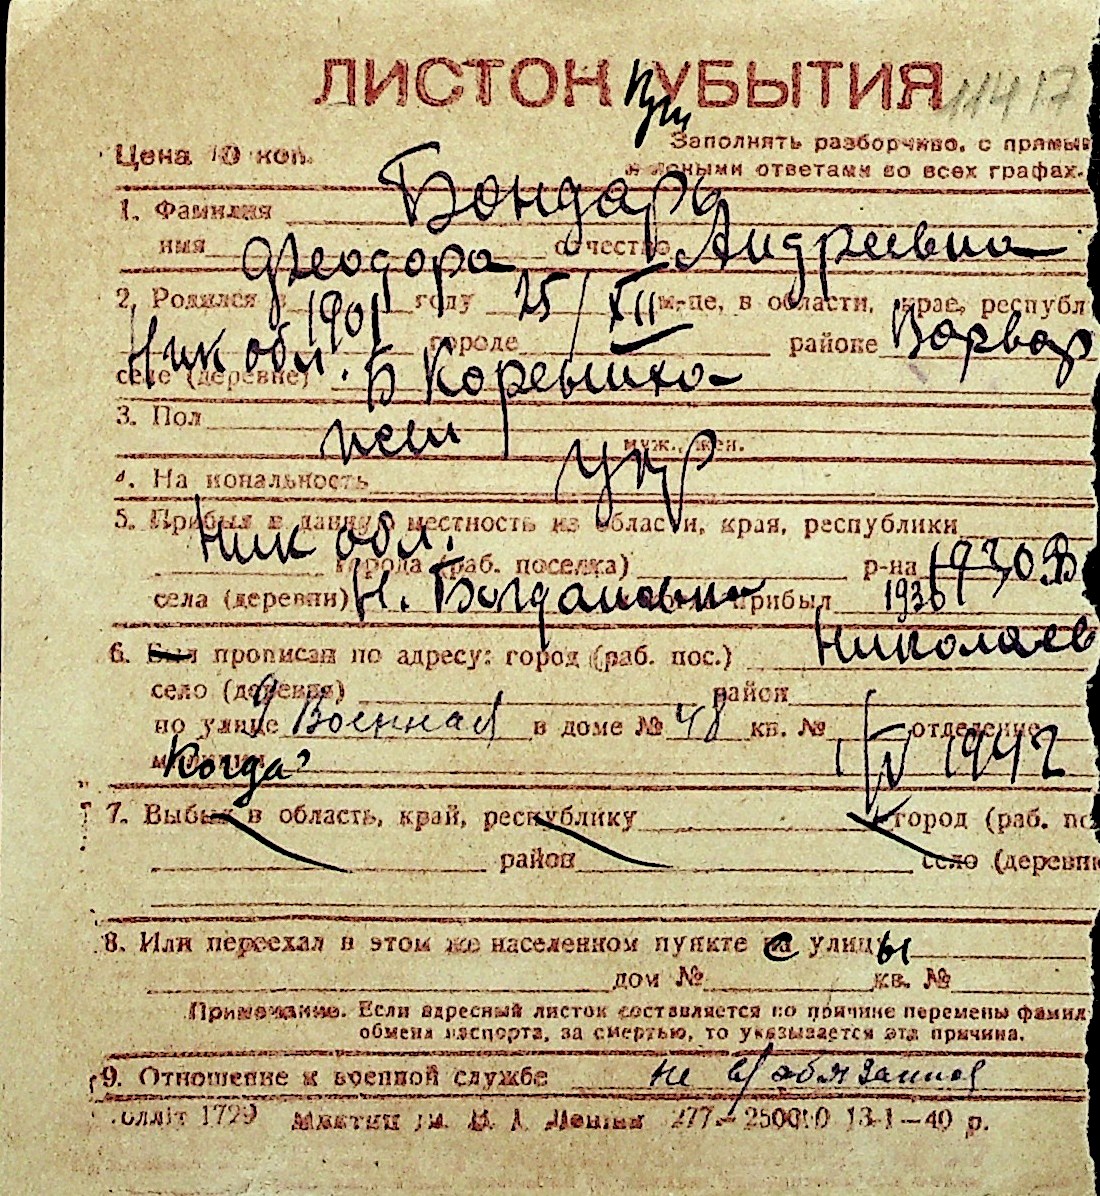 ЛИСТОК При УБЫТИЯ 11417
Цена 10 коп.
Заполнять разборчиво, с прямым
и ясными ответами во всех графах.
1. Фамилия Бондарь
имя Феодора отчество Андреевна
2. Родился в 1901 году 25/XII м-це, в области, крае, республ
Ник обл. городе районе Варвар
селе (деревне) Б Корениха
3. Пол жен муж., жен.
4. Национальность укр
5. Прибыл в данную местность из области, края, республики
Ник обл. города (раб. поселка) р-на 1930
села (деревни) Н. Богдановка прибыл 1930
6. Был прописан по адресу: город (раб. пос.) Николаев
село (деревня) район
по улице 9 Военная в доме № 48 кв. № отделение
милиции Когда? 1/IV 1942
7. Выбыл в область, край, республику город (раб. по
район село (деревни
8. Или переехал в этом же населенном пункте с улицы
дом № кв. №
Примечание. Если адресный листок составляется по причине перемены фамил
обмена паспорта, за смертью, то указывается эта причина.
9. Отношение к военной службе не в/обязанная
1729 277—250000 13-1—40 р.